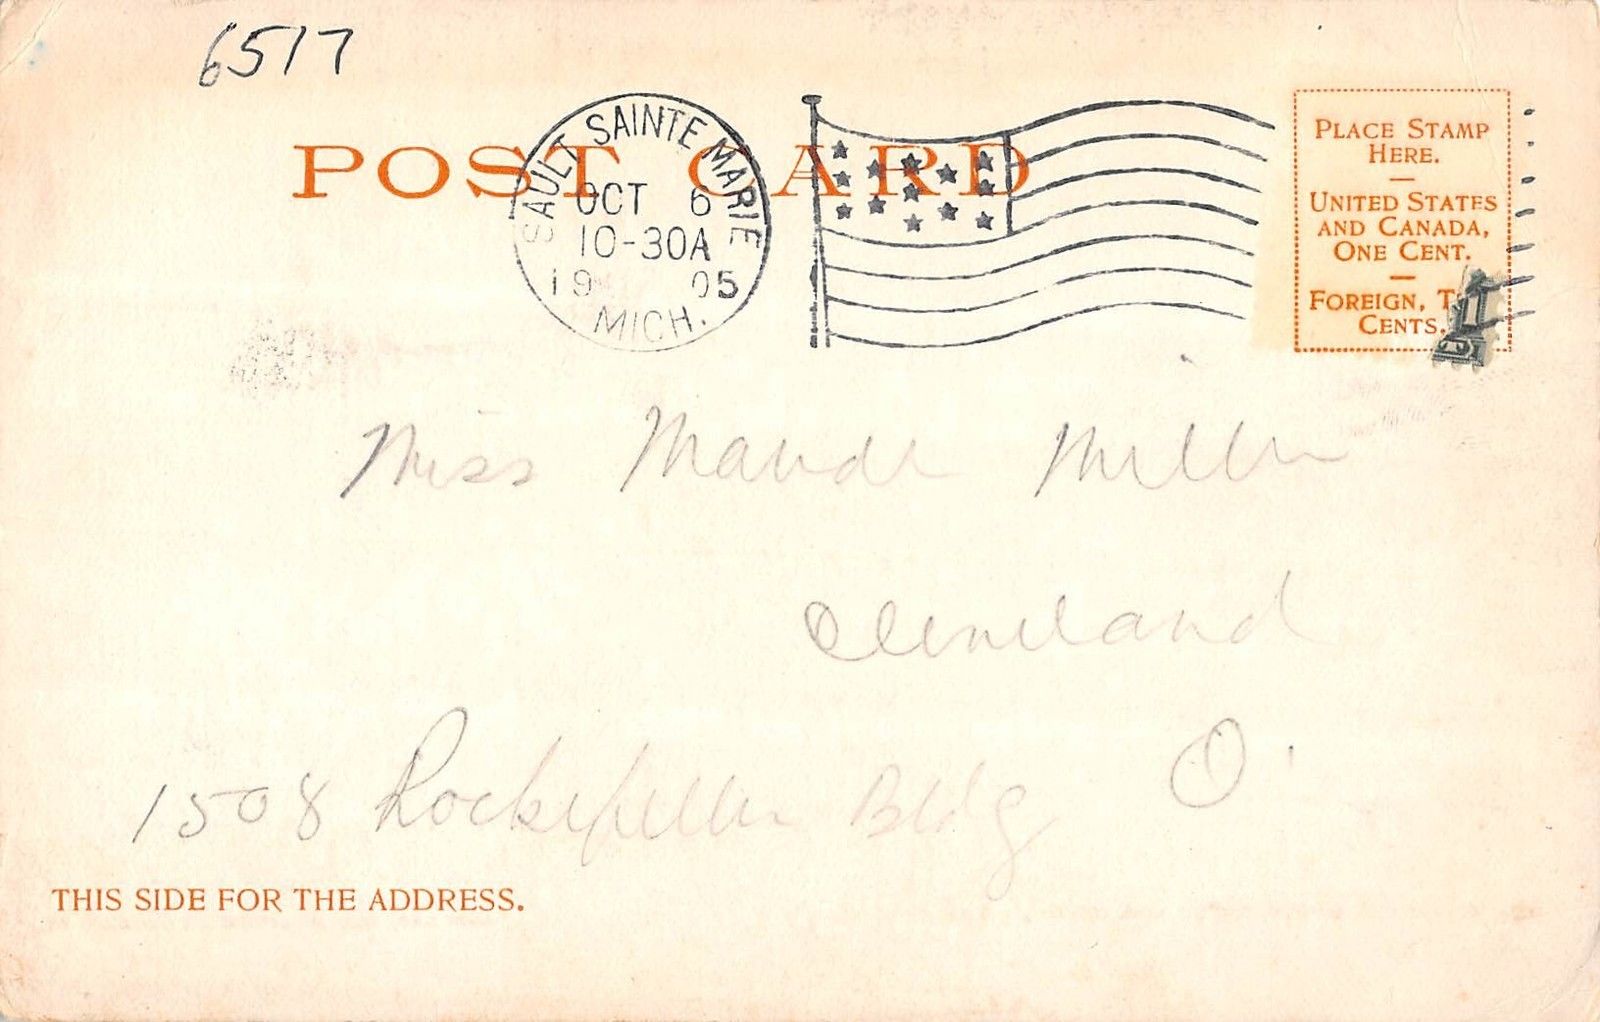 6517
POST CARD
SAULT SAINTE MARIE
OCT 6
10-30A
1905
MICH.
PLACE STAMP
HERE.
UNITED STATES
AND CANADA,
ONE CENT.
FOREIGN, T
CENTS.
Miss Maude Miller
Cleveland
O.
1508 Rockefeller Bldg
THIS SIDE FOR THE ADDRESS.